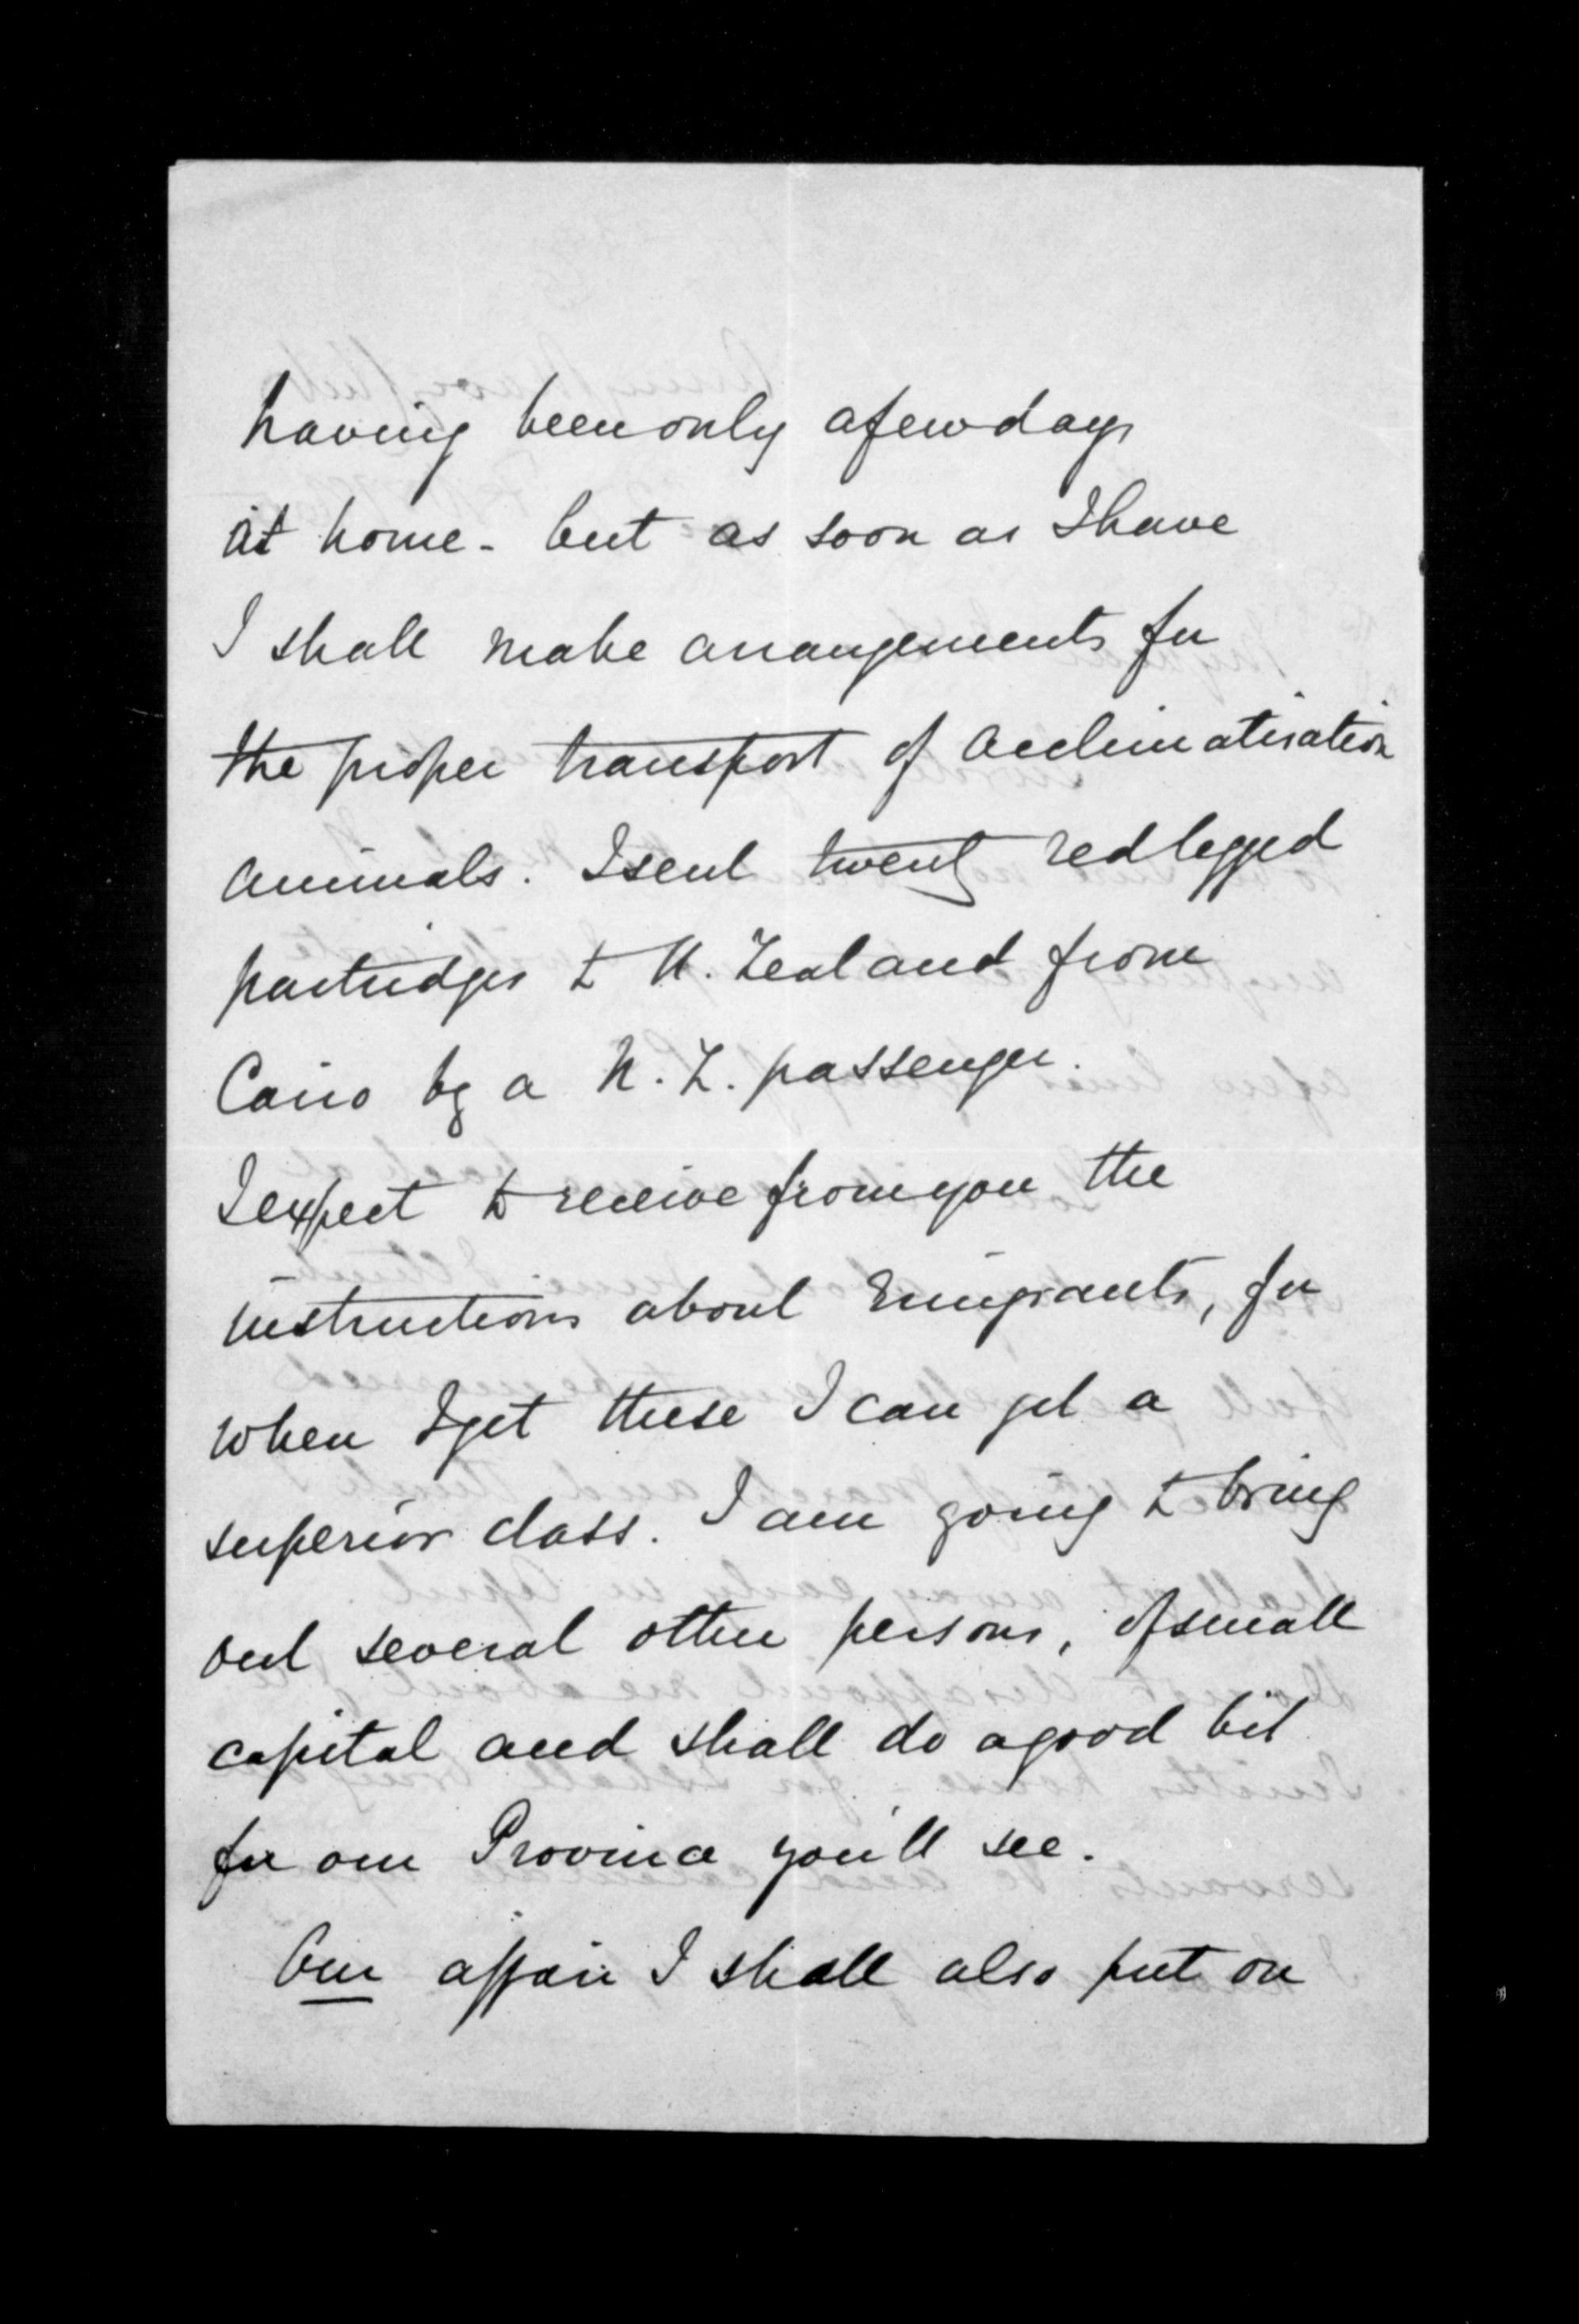 having been only a few days
at home - but as soon as I have
I shall make arrangements for
the proper transport of acclimatisation
animals. I sent twenty red legged
partridges to N. Zealand from
Cairo by a N. Z. passenger.
I expect to receive from you the
instructions about Emigrants, for
when I get these I can get a
superior class. I am going to bring
out several other persons, of small
capital and shall do a good bit
for our Province you'll see.
Our affair I shall also put on